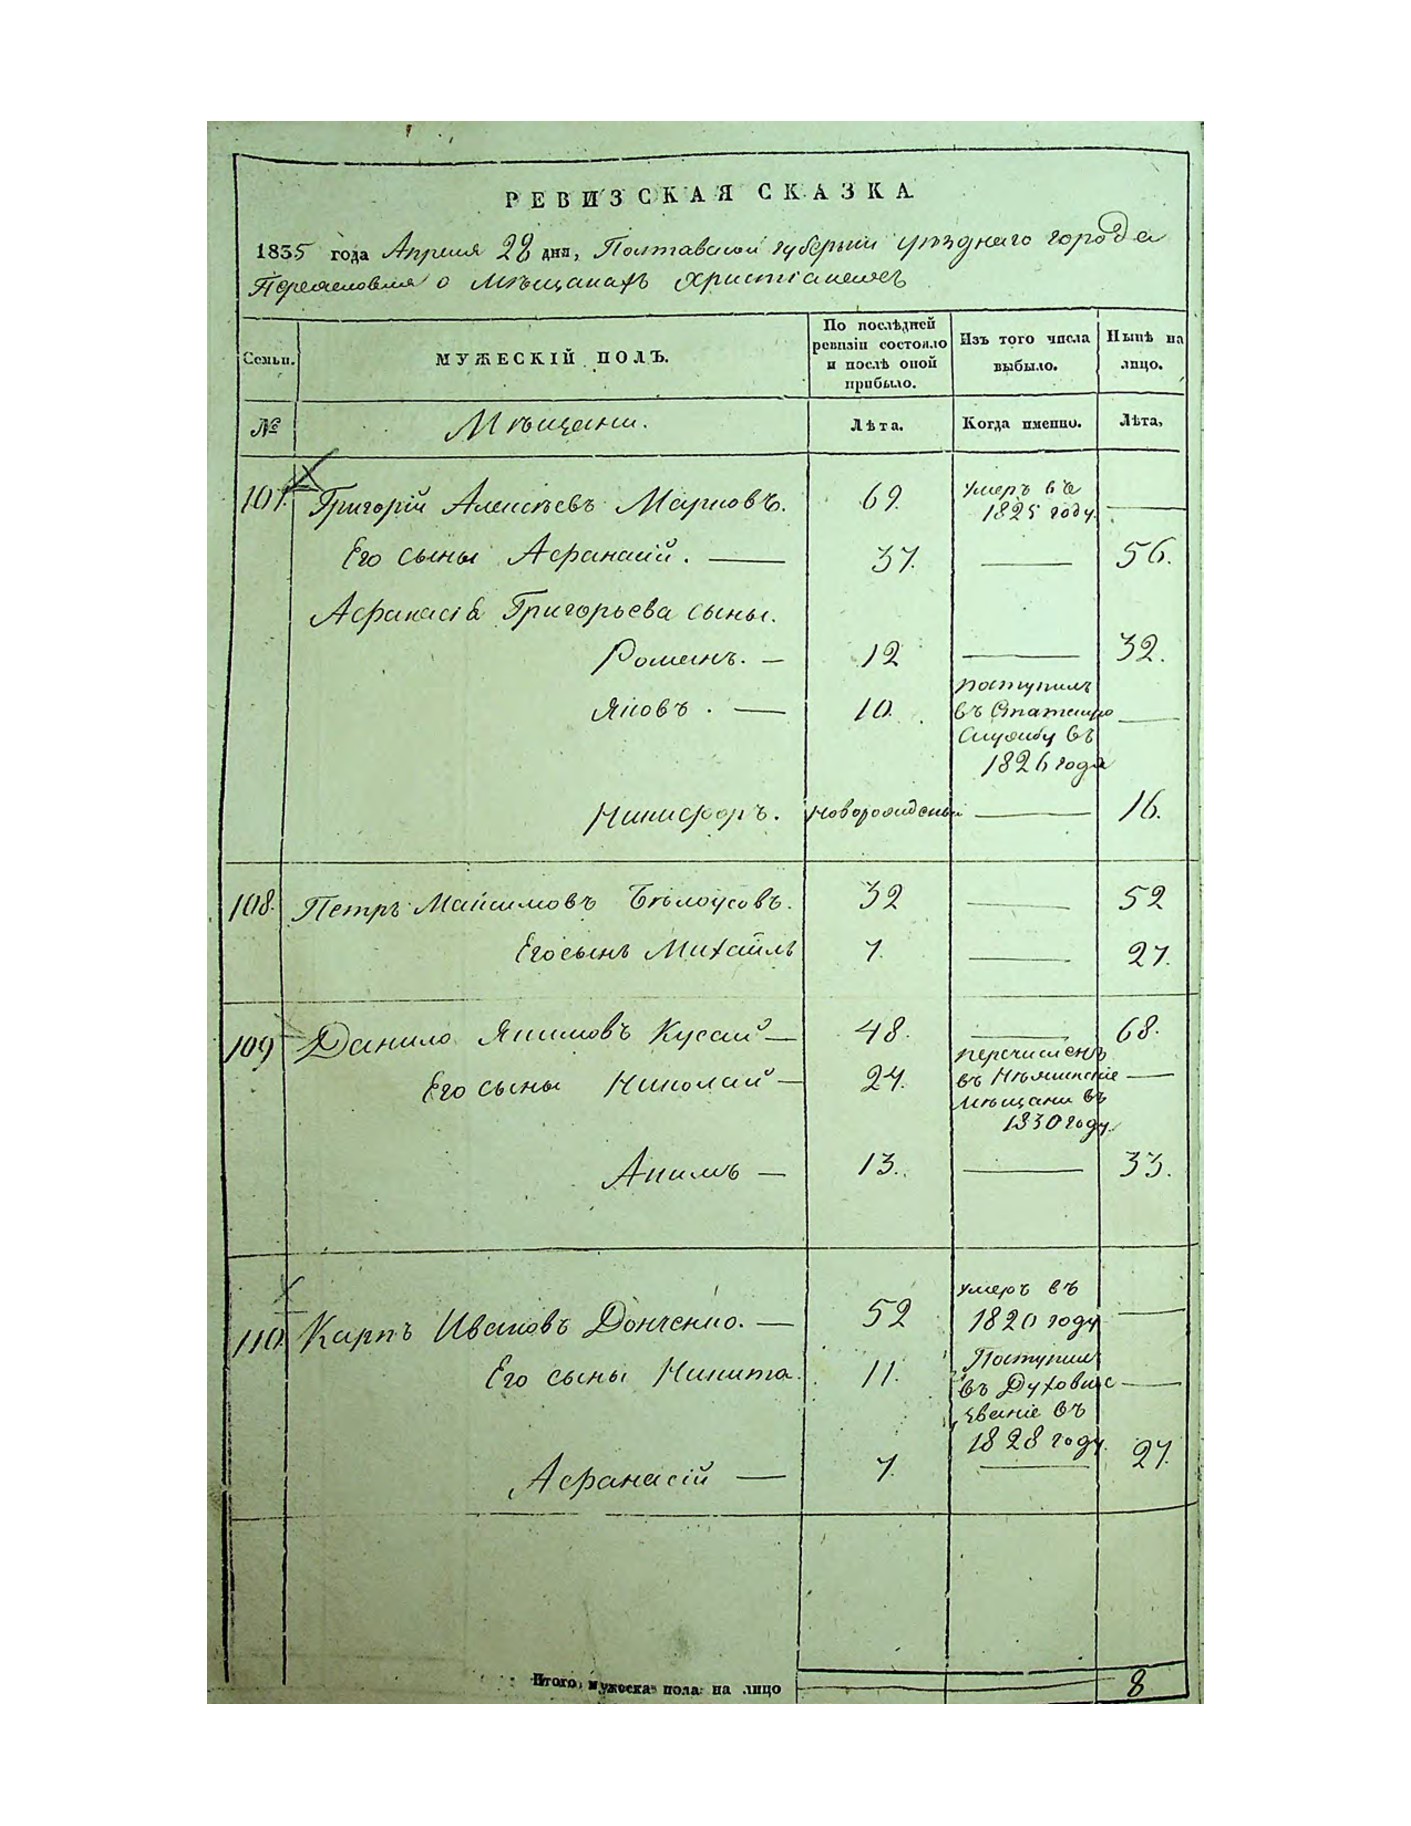 РЕВИЗСКАЯ СКАЗКА
1835 года Апреля 28 дня, Полтавской губернии уѣзднаго города
Переяславля о мѣщанахъ христіанехъ
Семьи.
МУЖЕСКІЙ ПОЛЪ.
По послѣдней ревизіи состояло и послѣ оной прибыло.
Изъ того числа выбыло.
Нынѣ на лицо.
№ Мѣщани. Лѣта. Когда именно. Лѣта,
107. Григорій Алексѣевъ Марковъ. 69. умеръ въ 1825 году. —
Его сыны Афанасій. — 37. — 56.
Афанасія Григорьева сыны.
Романъ. — 12 — 32.
Яковъ. — 10. поступилъ въ Статскую Службу въ 1826 года —
Никифоръ. Новорожденый — 16.
108. Петръ Максимовъ Бѣлоусовъ. 32 — 52
Его сынъ Михайлъ 7. — 27.
109 Данило Якимовъ Кусай — 48. — 68.
Его сыны Николай — 24. перечисленъ въ Нѣжинскіе мѣщани въ 1830 году. —
Акимъ — 13. — 33.
110. Карпъ Ивановъ Донченко. — 52 умеръ въ 1820 году —
Его сыны Никита. 11. Поступил въ Духовное званіе въ 1828 году. —
Афанасій — 7. — 27.
Итого мужеска пола на лицо 8